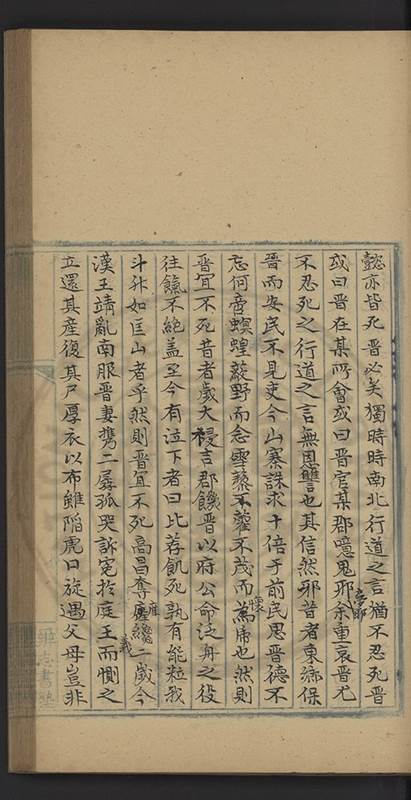 懿亦皆死晋必矣獨時時南北行道之言猶不忍死晋
或曰晋在某所會或曰晋官某郡噫鬼邪余重哀晋尤
不忍死之行道之言無恩讐也其信然邪昔者東鄉保
晋而安民不見吏今山寨誅求十倍于前民思晋德不
忘何啻螟蝗蔽野而念雪藜不藿不茂而為席也然則
晋宜不死昔者歲大祲言郡饑晋以府公命泛舟之役
往饒不絶盖至今有泣下者曰比荐飢死孰有能粒我
斗升如匡山者乎然則晋宜不死高昌奪廛纔二歲今
漢王靖亂南服晋妻攜二孱孤哭訴寃於庭王而惻之
立還其産復其尸厚衣以布雖陷虎口旋遇父母豈非
懷
義
羅志書塾